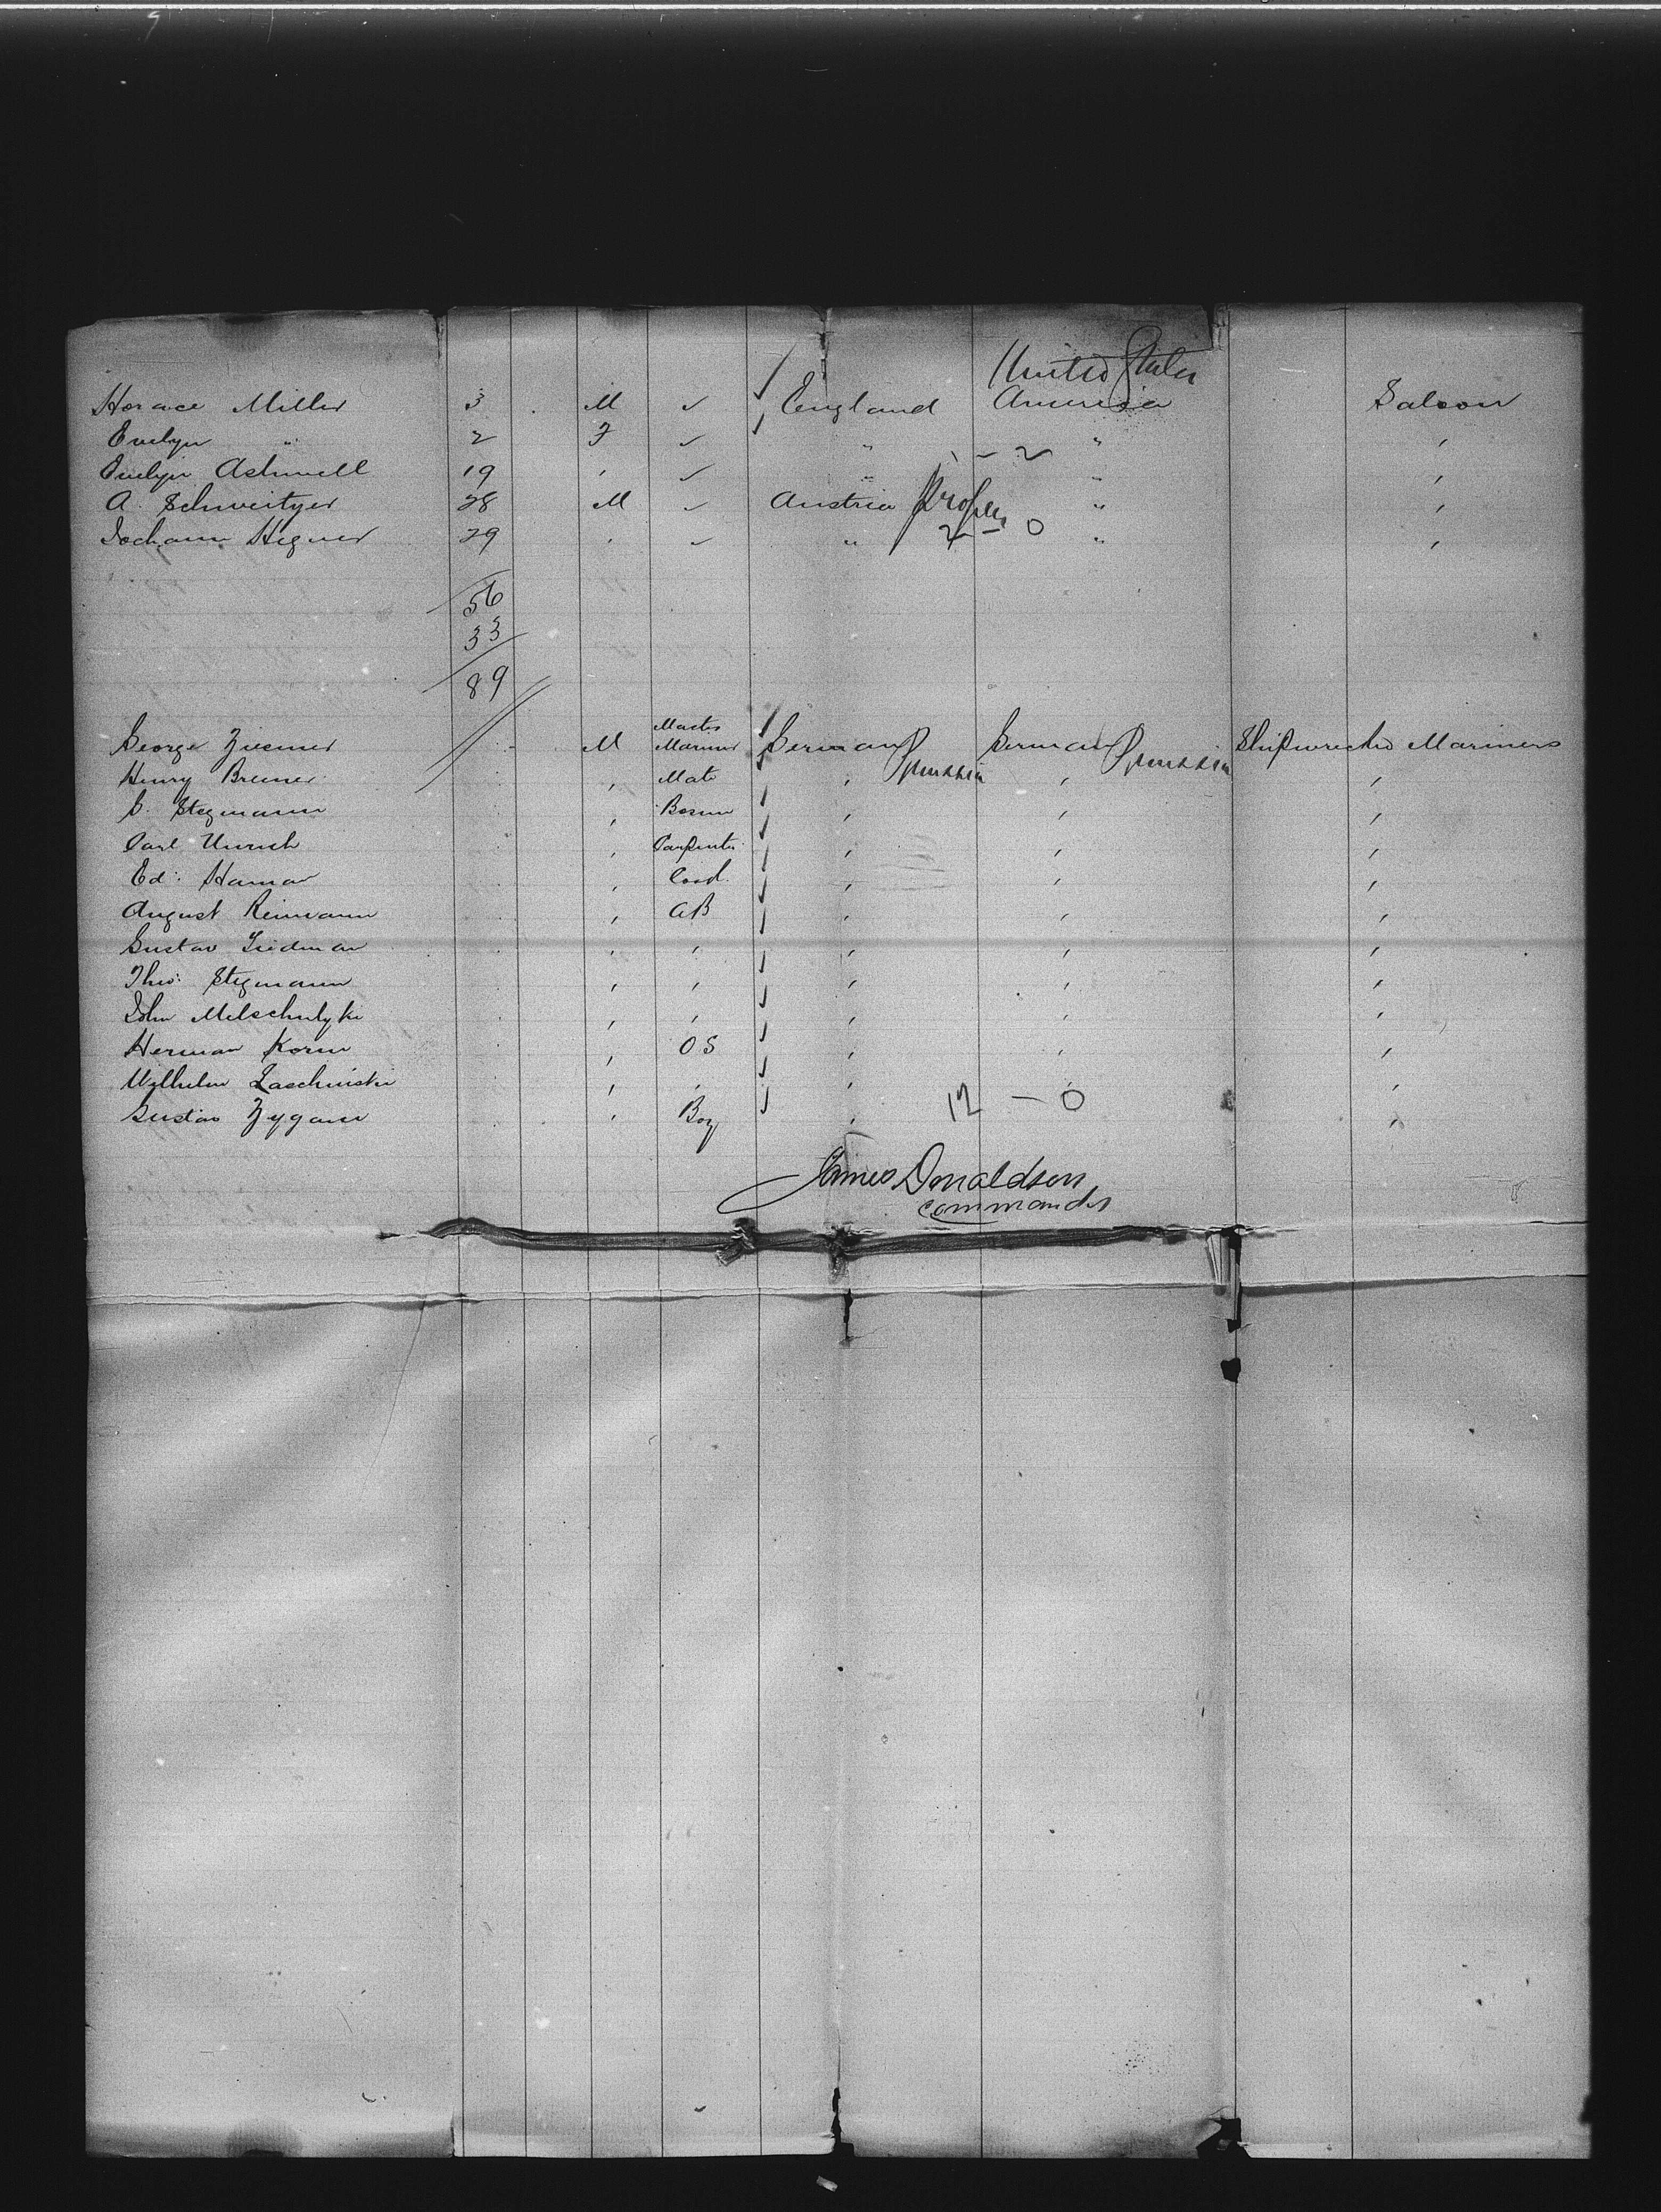 United States
Horace Miller 3 M ✓ England America Saloon
Evelyn " 2 F ✓ " " ,
1 - 2
Evelyn Ashwell 19 , ✓ " " ,
A. Schweitzer 28 M ✓ Austria proper " ,
Johann Hegner 29 , ✓ " 2 - 0 " ,
56
33
89
Master
George Ziemer M Mariner Germany Germany Shipwrecked Mariners
Henry Bremer , Mate , Prussia , Prussia ,
G. Stegmann , Bosun , , ,
Carl Unruh , Carpenter , , ,
Ed: Haman , Cook , , ,
August Reimann , AB , , ,
Gustav Friedman , , , , ,
Theo: Stegmann , , , , ,
John , , , , ,
Herman Korm , OS , , ,
Wilhelm Laschinski , , , , ,
Gustav Zygann , Boy , 12 - 0 ,
James Donaldson
Commander